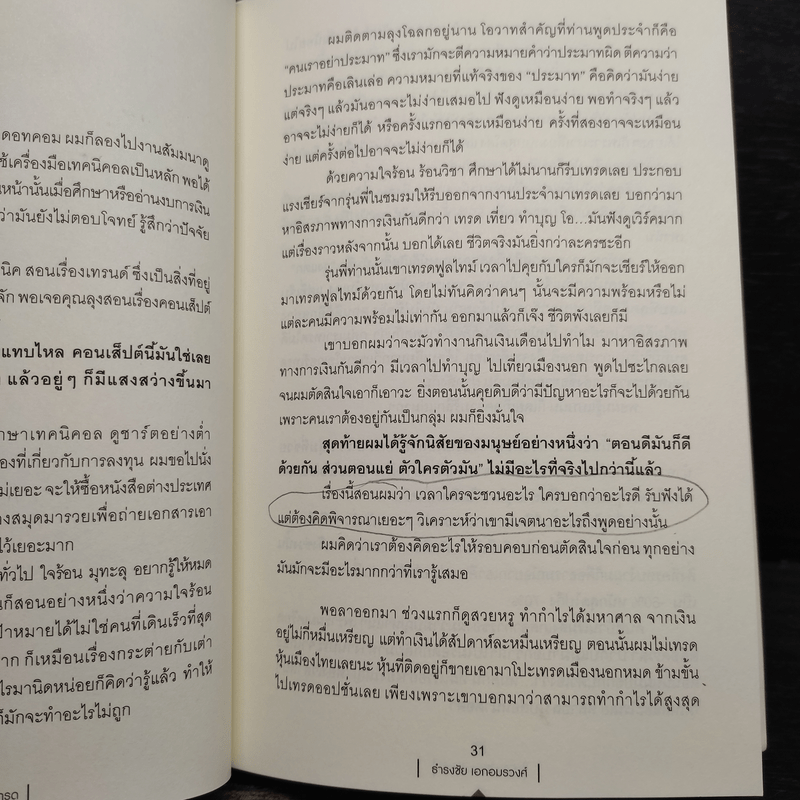 ดอทคอม ผมก็ลองไปงานสัมมนาดู
ช้เครื่องมือเทคนิคอลเป็นหลัก พอได้
หน้านั้นเมื่อศึกษาหรืออ่านงบการเงิน
ว่ามันยังไม่ตอบโจทย์ รู้สึกว่าปัจจัย
นิค สอนเรื่องเทรนด์ ซึ่งเป็นสิ่งที่อยู่
จัก พอเจอคุณลุงสอนเรื่องคอนเส็ปต์
แทบไหล คอนเส็ปต์นี้มันใช่เลย
แล้วอยู่ๆ ก็มีแสงสว่างขึ้นมา
กษาเทคนิคอล ดูชาร์ตอย่างต่ำ
องที่เกี่ยวกับการลงทุน ผมขอไปนั่ง
ม่เยอะ จะให้ซื้อหนังสือต่างประเทศ
งสมุดมารวยเพื่อถ่ายเอกสารเอา
ไว้เยอะมาก
ทั่วไป ใจร้อน มุทะลุ อยากรู้ให้หมด
นก็สอนอย่างหนึ่งว่าความใจร้อน
ป้าหมายได้ไม่ใช่คนที่เดินเร็วที่สุด
าก ก็เหมือนเรื่องกระต่ายกับเต่า
ไรมานิดหน่อยก็คิดว่ารู้แล้ว ทำให้
ก็มักจะทำอะไรไม่ถูก
ทรด
ผมติดตามลุงโฉลกอยู่นาน โอวาทสำคัญที่ท่านพูดประจำก็คือ
“คนเราอย่าประมาท” ซึ่งเรามักจะตีความหมายคำว่าประมาทผิด ตีความว่า
ประมาทคือเลินเล่อ ความหมายที่แท้จริงของ “ประมาท” คือคิดว่ามันง่าย
แต่จริงๆ แล้วมันอาจจะไม่ง่ายเสมอไป ฟังดูเหมือนง่าย พอทำจริงๆ แล้ว
อาจจะไม่ง่ายก็ได้ หรือครั้งแรกอาจจะเหมือนง่าย ครั้งที่สองอาจจะเหมือน
ง่าย แต่ครั้งต่อไปอาจจะไม่ง่ายก็ได้
ด้วยความใจร้อน ร้อนวิชา ศึกษาได้ไม่นานก็รีบเทรดเลย ประกอบ
แรงเชียร์จากรุ่นพี่ในชมรมให้รีบออกจากงานประจำมาเทรดเลย บอกว่ามา
หาอิสรภาพทางการเงินกันดีกว่า เทรด เที่ยว ทำบุญ โอ...มันฟังดูเวิร์คมาก
แต่เรื่องราวหลังจากนั้น บอกได้เลย ชีวิตจริงมันยิ่งกว่าละครซะอีก
รุ่นพี่ท่านนั้นเขาเทรดฟูลไทม์ เวลาไปคุยกับใครก็มักจะเชียร์ให้ออก
มาเทรดฟูลไทม์ด้วยกัน โดยไม่ทันคิดว่าคนๆ นั้นจะมีความพร้อมหรือไม่
แต่ละคนมีความพร้อมไม่เท่ากัน ออกมาแล้วก็เจ๊ง ชีวิตพังเลยก็มี
เขาบอกผมว่าจะมัวทำงานกินเงินเดือนไปทำไม มาหาอิสรภาพ
ทางการเงินกันดีกว่า มีเวลาไปทำบุญ ไปเที่ยวเมืองนอก พูดไปซะไกลเลย
จนผมตัดสินใจเอาก็เอาวะ ยิ่งตอนนั้นคุยดิบดีว่ามีปัญหาอะไรก็จะไปด้วยกัน
เพราะคนเราต้องอยู่กันเป็นกลุ่ม ผมก็ยิ่งมั่นใจ
สุดท้ายผมได้รู้จักนิสัยของมนุษย์อย่างหนึ่งว่า “ตอนดีมันก็ดี
ด้วยกัน ส่วนตอนแย่ ตัวใครตัวมัน” ไม่มีอะไรที่จริงไปกว่านี้แล้ว
เรื่องนี้สอนผมว่า เวลาใครจะชวนอะไร ใครบอกว่าอะไรดี รับฟังได้
แต่ต้องคิดพิจารณาเยอะๆ วิเคราะห์ว่าเขามีเจตนาอะไรถึงพูดอย่างนั้น
ผมคิดว่าเราต้องคิดอะไรให้รอบคอบก่อนตัดสินใจก่อน ทุกอย่าง
มันมักจะมีอะไรมากกว่าที่เรารู้เสมอ
พอลาออกมา ช่วงแรกก็ดูสวยหรู ทำกำไรได้มหาศาล จากเงิน
อยู่ไม่กี่หมื่นเหรียญ แต่ทำเงินได้สัปดาห์ละหมื่นเหรียญ ตอนนั้นผมไม่เทรด
หุ้นเมืองไทยเลยนะ หุ้นที่ติดอยู่ก็ขายเอามาโปะเทรดเมืองนอกหมด ข้ามขั้น
ไปเทรดออปชั่นเลย เพียงเพราะเขาบอกมาว่าสามารถทำกำไรได้สูงสุด
31
ธำรงชัย เอกอมรวงศ์